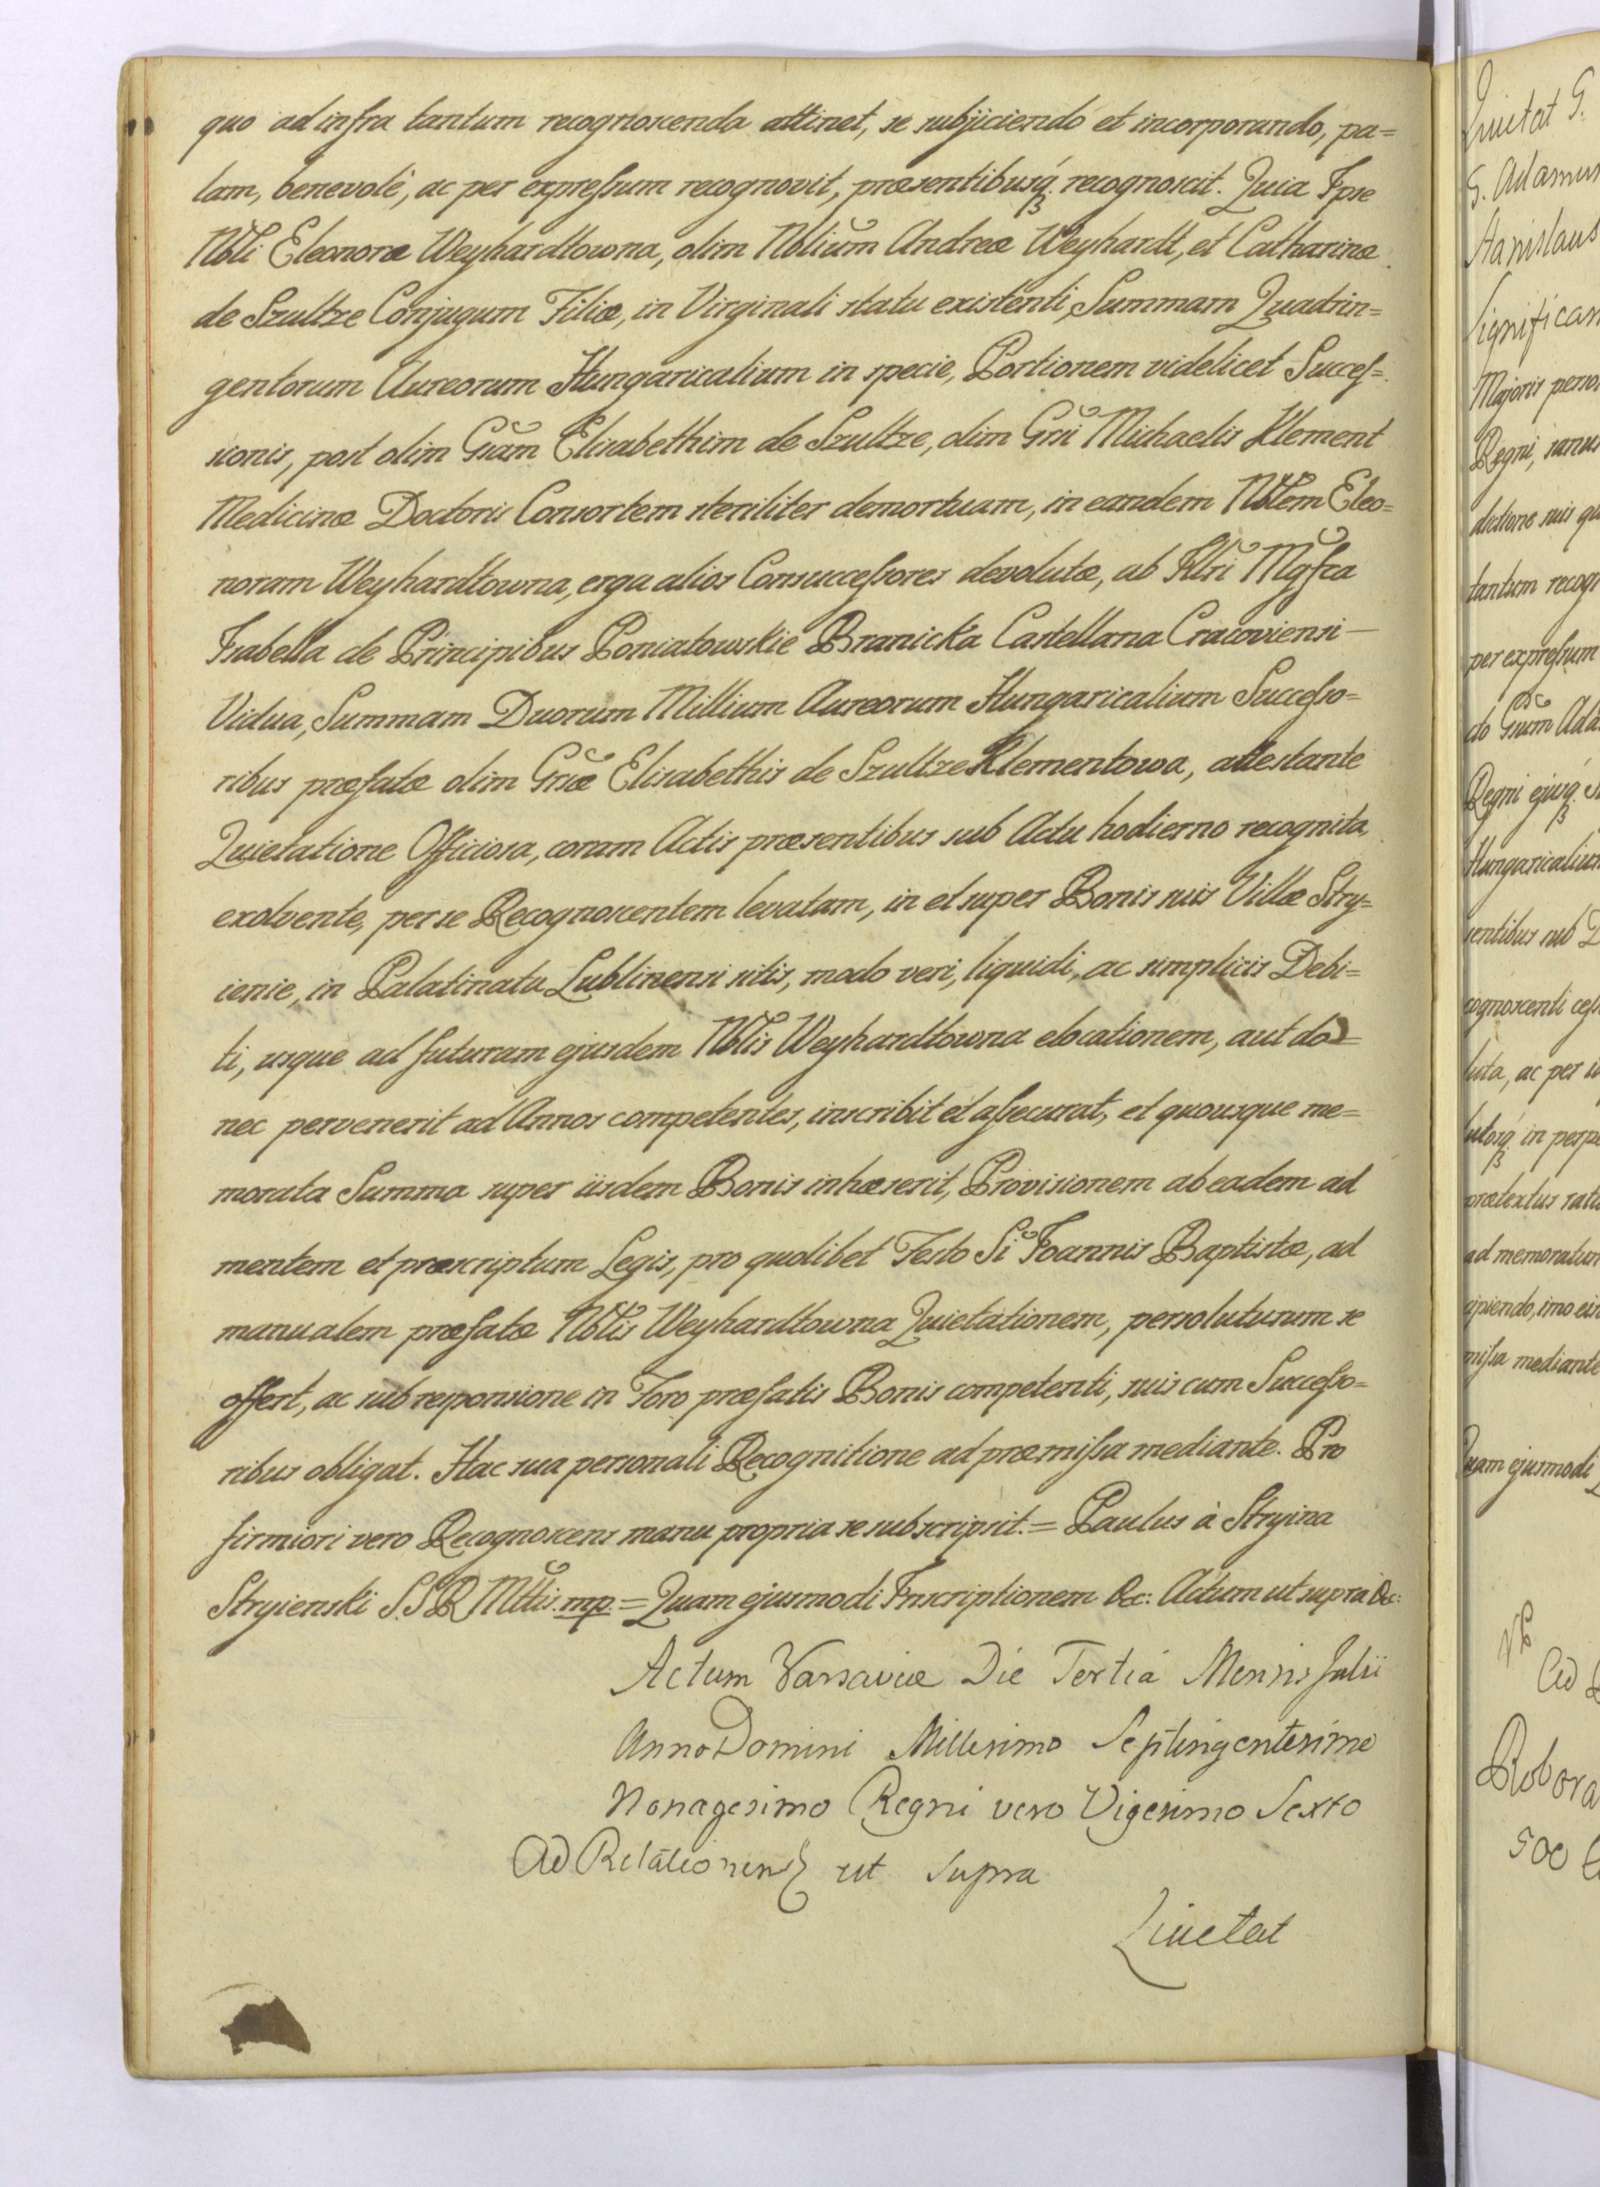 quo ad infra tantum recognoscenda attinet, se subjiciendo et incorporando, pa=
lam, benevolè, ac per expreſsum recognovit, præsentibusq́ꝫ recognoscit. Quia Ipse
Nbli Eleonoræ Weyhardtowna, olim Nbliūm Andreæ Weyhardt, et Catharinæ
de Szultze Conjugum Filiæ, in Virginali statu existenti, Summam Quadrin=
gentorum Aureorum Hungaricalium in specie, Portionem videlicet Succeſ=
sionis, post olim Gsām Elisabethim de Szultze, olim Gsi Michaelis Klement
Medicinæ Doctoris Consortem steriliter demortuam, in eandem Nblem Eleo=
noram Weyhardtowna, erga alios Consucceſsores devolutæ, ab Illri Mgfca
Isabella de Principibus Poniatowskie Branicka Castellana Cracoviensi —
Vidua, Summam Duorum Millium Aureorum Hungaricalium Succeſso=
ribus præfatæ olim Gsæ Elisabethis de Szultze Klementowa, attestante
Quietatione Officiosa, coram Actis præsentibus sub Actu hodierno recognita,
exolvente, per se Recognoscentem levatam, in et super Bonis suis Villæ Stry=
ienie, in Palatinatu Lublinensi sitis, modo veri, liquidi, ac simplicis Debi=
ti, usque ad futuram ejusdem Nblis Weyhardtowna elocationem, aut do=
nec pervenerit ad Annos competentes, inscribit et aſsecurat, et quousque me=
morata Summa super iisdem Bonis inhæserit, Provisionem ab eadem ad
mentem et præscriptum Legis, pro quolibet Festo Si Joannis Baptistæ, ad
manualem præfatæ Nblis Weyhardtowna Quietationem, persoluturum se
offert, ac sub responsione in Foro præfatis Bonis competenti, suis cum Succeſso=
ribus obligat. Hac sua personali Recognitione ad præmiſsa mediante. Pro
firmiori vero Recognoscens manu propria se subscripsit. = Paulus à Stryina
Stryienski S.S.R Mttis. mp. = Quam ejusmodi Inscriptionem &c: Actum ut supra &c:
Actum Varsaviæ Die Tertiá Mensis Julii
Anno Domini Millesimo Septingentesimo
Nonagesimo Regni vero Vigesimo Sexto
Ad Relationem ut supra
Quietat
Quietat G.
G. Adamus
Stanislaus
Significan
Majoris perso
Regni, sanus
dictione suis qu
tantum recogn
per expreſsum
do Gsum Ada
Regni ejusq́ꝫ S
Hungaricalium
sentibus sub D
cognoscenti ceſs
luta, ac per
in perpe
prætextus
ad memoratum
cipiendo, imo
miſsa mediante
Quam ejusmodi
Ad
Robora
500